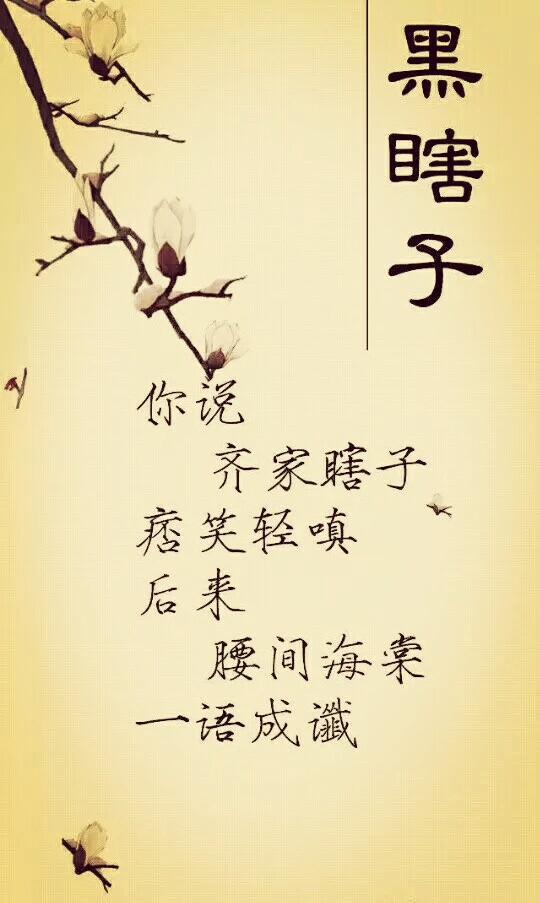 黑瞎子
你说
齐家瞎子
痞笑轻嗔
后来
腰间海棠
一语成谶